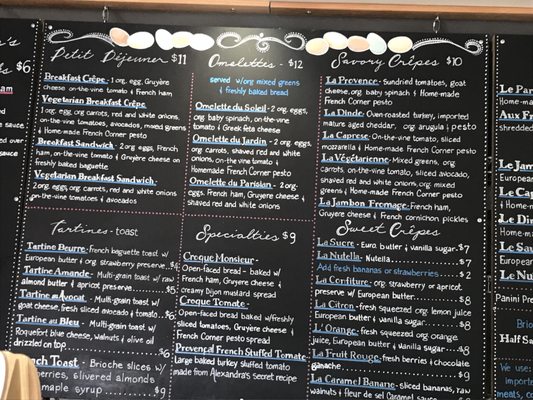 's
$6
ham
sauce
ed over
sauce
Petit Déjeuner $11
Breakfast Crêpe - 1 org. egg, Gruyère
cheese on-the-vine tomato & French ham
Vegetarian Breakfast Crêpe
1 org. egg, org carrots, red and white onions,
on-the-vine tomatoes, avocados, mixed greens
& Homemade French Corner pesto
Breakfast Sandwich - 2 org. eggs, French
ham, on-the-vine tomato & Gruyère cheese on
freshly baked baguette
Vegetarian Breakfast Sandwich -
2 org. eggs, org. carrots, red and white onions,
on-the-vine tomatoes & avocados
Omelettes - $12
served w/org mixed greens
& freshly baked bread
Omelette du Soleil - 2 org. eggs,
org. baby spinach, on-the-vine
tomato & Greek feta cheese
Omelette du Jardin - 2 org. eggs,
org. carrots, shaved red and white
onions, on-the-vine tomato &
Homemade French Corner pesto
Omelette du Parisian - 2 org.
eggs, French ham, Gruyère cheese &
shaved red and white onions
Savory Crêpes $10
La Provence - Sundried tomatoes, goat
cheese, org. baby spinach & Home-made
French Corner pesto
La Dinde - Oven-roasted turkey, imported
mature aged cheddar, org arugula & pesto
La Caprese - On-the-vine tomato, sliced
mozzarella & Homemade French Corner pesto
La Végétarienne - Mixed greens, org
carrots, on-the-vine tomato, sliced avocado,
shaved red and white onions, org mixed
greens & Home-made French Corner pesto
La Jambon Fromage - French ham,
Gruyere cheese & French cornichon pickles
Tartines - toast
Tartine Beurre - French baguette toast w/
European butter & org strawberry preserve..$4
Tartine Amande - Multi-grain toast w/ raw
almond butter & apricot preserve $5
Tartine au Avocat - Multi-grain toast w/
goat cheese, fresh sliced avocado & tomato $6
Tartine au Bleu - Multi-grain toast w/
Roquefort blue cheese, walnuts & olive oil
drizzled on top $6
French Toast - Brioche slices w/
berries, slivered almonds
maple syrup $9
Specialties $9
Croque Monsieur -
Open-faced bread - baked w/
French ham, Gruyère cheese &
creamy Dijon mustard spread
Croque Tomate -
Open-faced bread baked w/freshly
sliced tomatoes, Gruyère cheese &
French Corner pesto spread
Provençal French Stuffed Tomato
Large baked turkey stuffed tomato
made from Alexandra's secret recipe
Sweet Crêpes
La Sucre - Euro. butter & vanilla sugar..$7
La Nutella - Nutella $7
Add fresh bananas or strawberries $2
La Confiture - org strawberry or apricot
preserve w/ European butter $8
La Citron - fresh squeezed org. lemon juice,
European butter & vanilla sugar $8
L'Orange - fresh squeezed org orange
juice, European butter & vanilla sugar $8
La Fruit Rouge - fresh berries & chocolate
ganache $9
La Caramel Banane - sliced bananas, raw
walnuts & fleur de sel Caramel sauce
Le Par
Home-ma
Aux Fr
shredded
Le Jam
Le Cap
Le Din
Le Sau
Le Nut
Panini Pre
Brio
Half Sa
We use